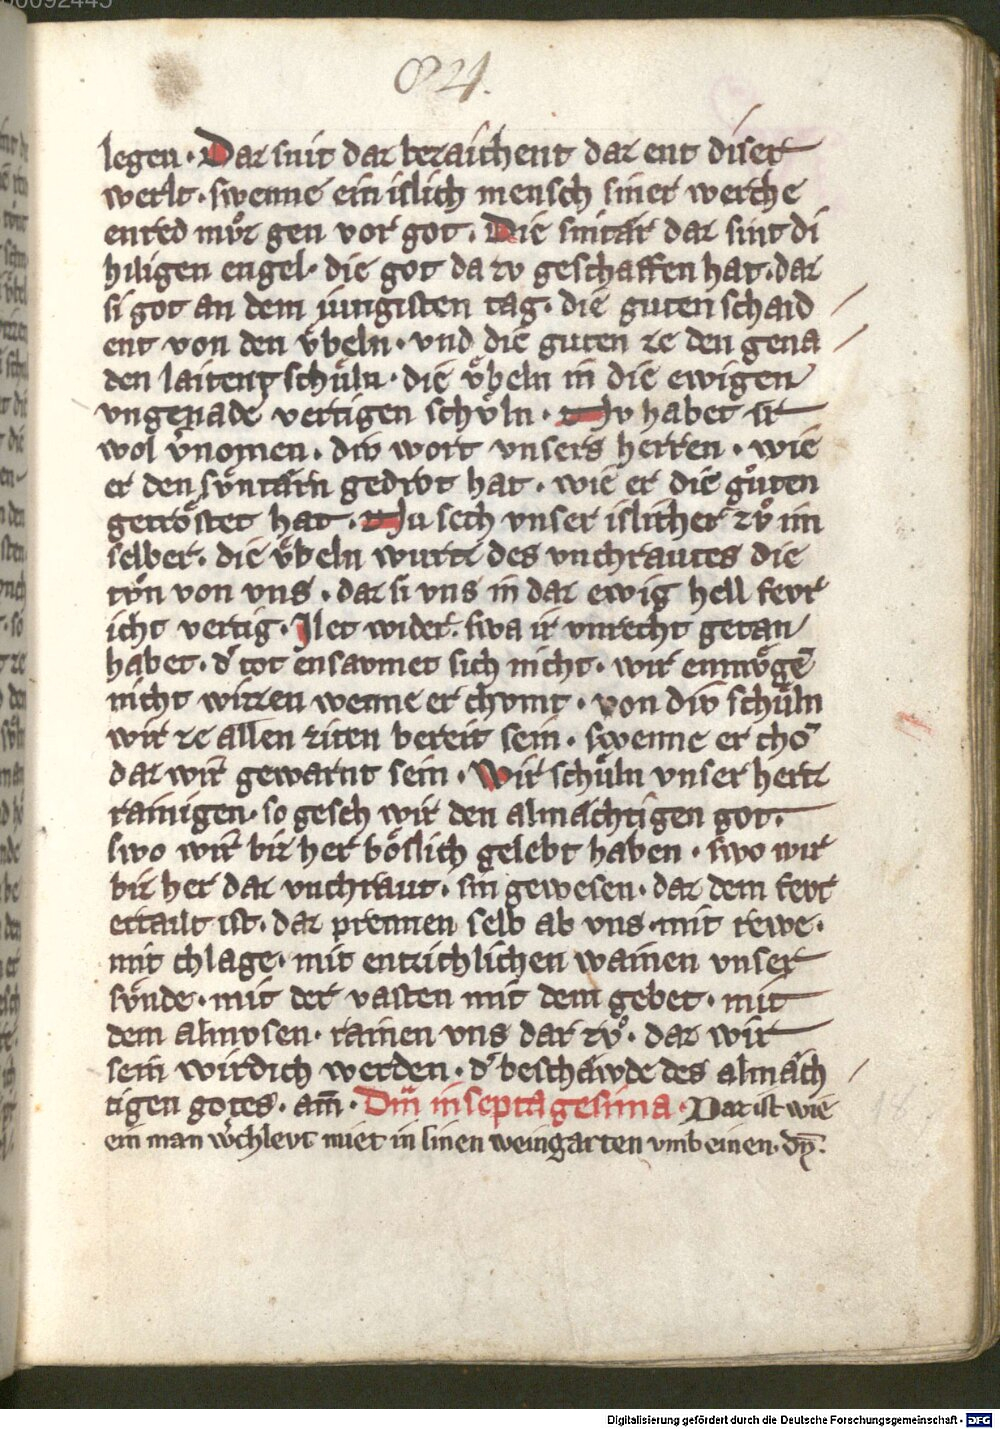 00092445
824.
legen · Daz snit daz bezaichent daz ent diser
werlt · swenne ein islich mensch siner werche
entred můz gen vor got · Die snitær daz sint di
hiligen engel · die got da zv geschaffen hat · daz
si got an dem iungisten tag · die guten schaid
ent von den v̊beln · vnd die guten ze den gena
den laitent schůln · die v̊beln in die ewigen
vngenade vertigen schůln · Nv habet ir
wol v̓nomen · div wort vnsers herren · wie
er den svntærn gedrvt hat · wie er die gůten
getrőstet hat · Nu sech vnser islicher zv̊ im
selber · die v̊beln wurtz des vnchrautes die
tvn von vns · daz si vns in daz ewig hell fevr
icht vertig · Ilet wider · swa ir vnrecht getan
habet · d̓ tot ensavmet sich nicht · wir enmv̊gē
nicht wizzen wenne er chvmt · von div schůln
wir ze allen ziten bereit sein · swenne er chō
daz wir gewarnt sein · Wir schůln vnser hertz
rainigen · so gesech wir den almæchtigen got ·
swo wir biz her bőslich gelebt haben · swo wir
biz her daz vnchraut · sin gewesen · daz dem fevr
ertailt ist · daz prennen selb ab vns · mit rewe ·
mit chlage · mit entzichlichen wainen vnser
svnde · mit der vasten mit dem gebet · mit
dem almvsen · rainen vns dar zv̊ · daz wir
sein wirdich werden · d̓ beschæwde des almæch
tigen gotes · am̄ · Dn̄i in septagesima · Daz ist wie
ein man w̓chlevt miet in sinen weingarten vmb einen · dn̄ ·
Digitalisierung gefördert durch die Deutsche Forschungsgemeinschaft · DFG